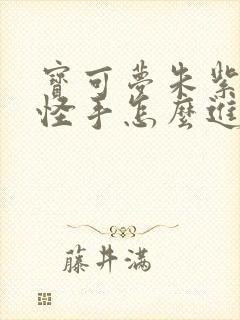 寶可夢朱紫
怪手怎麼進
藤井滿